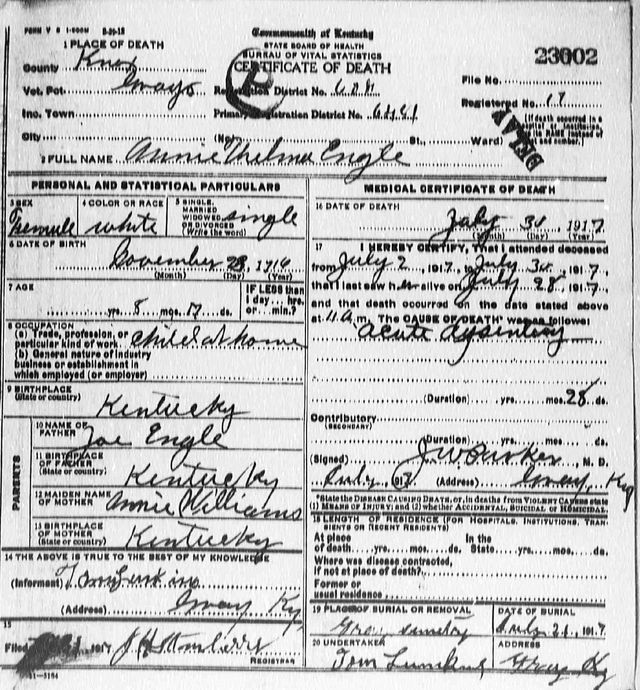 FORM V S 1-500M 5-21-15
Commonwealth of Kentucky
STATE BOARD OF HEALTH
BUREAU OF VITAL STATISTICS
CERTIFICATE OF DEATH
23002
1 PLACE OF DEATH
County Knox
Vot. Pct. Grays
Registration District No.
File No.
Inc. Town
Primary Registration District No.
Registered No. 17
City (No. St., Ward)
(If death occurred in a hospital or institution, give its NAME instead of street and number.)
DELAY
2 FULL NAME Annie Thelma Engle
PERSONAL AND STATISTICAL PARTICULARS
3 SEX
Female
4 COLOR OR RACE
white
5 SINGLE, MARRIED WIDOWED OR DIVORCED (Write the word)
single
6 DATE OF BIRTH
November 23, 1916
(Month) (Day) (Year)
7 AGE
yrs. 8 mos. 17 ds.
IF LESS than 1 day... hrs. or... min.?
8 OCCUPATION
(a) Trade, profession, or particular kind of work child at home
(b) General nature of industry business or establishment in which employed (or employer)
9 BIRTHPLACE
(State or country)
Kentucky
PARENTS
10 NAME OF FATHER Joe Engle
11 BIRTHPLACE OF FATHER (State or country) Kentucky
12 MAIDEN NAME OF MOTHER Annie Williams
13 BIRTHPLACE OF MOTHER (State or country) Kentucky
14 THE ABOVE IS TRUE TO THE BEST OF MY KNOWLEDGE
(Informant)
(Address) Gray Ky
15
Filed 1917
REGISTRAR
11-3184
MEDICAL CERTIFICATE OF DEATH
16 DATE OF DEATH
July 30 1917
(Month) (Day) (Year)
17 I HEREBY CERTIFY, That I attended deceased
from July 2 1917, to July 30, 1917,
that I last saw h alive on July 28, 1917,
and that death occurred on the date stated above
at 11 a. m. The CAUSE OF DEATH* was as follows:
acute dysentery
(Duration) yrs. mos. 28 ds.
Contributory
(SECONDARY)
(Duration) yrs. mos. ds.
(Signed) J W Parker, M. D.
July, 1917 (Address) Gray, Ky
*State the DISEASE CAUSING DEATH, or, in deaths from VIOLENT CAUSES state (1) MEANS OF INJURY; and (2) whether ACCIDENTAL, SUICIDAL or HOMICIDAL
18 LENGTH OF RESIDENCE (FOR HOSPITALS, INSTITUTIONS, TRANSIENTS OR RECENT RESIDENTS)
At place of death... yrs... mos... ds. In the State... yrs... mos... ds.
Where was disease contracted,
if not at place of death?
Former or
usual residence
19 PLACE OF BURIAL OR REMOVAL
Gray cemetery
DATE OF BURIAL
1917
20 UNDERTAKER
Tom
ADDRESS
Gray Ky